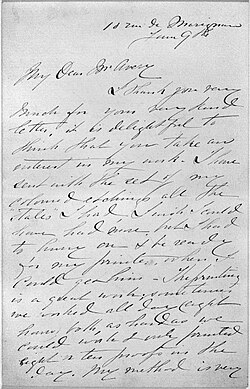 10 rue de Marignan
June 9th
My Dear Mr Avery
I thank you very
much for your very kind
letter, it is delightful to
think that you take an
interest in my work. I have
sent with the set of my
coloured etchings all the
states I had, I wish I could
have had more but I had
to hurry on & be ready
for my printer, when I
could get him. The printing
is a great work; sometimes
we worked all day (eight
hours) both, as hard as we
could work & only printed
eight or ten proofs in the
day. My method is very